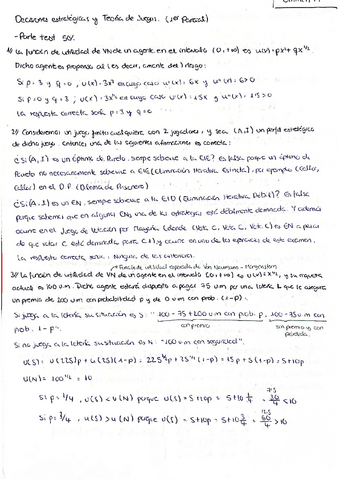 Decisiones estratégicas y Teoría de Juegos. (1er Parcial)
- Parte test 50%
1) La función de utilidad de VN de un agente en el intervalo (0,+∞) es u(x)=px²+qx^1/2.
Dicho agente es propenso al riesgo:
Si p=3 y q=0, u(x)=3x² en cuyo caso u'(x)=6x y u''(x)=6>0
Si p=0 y q=3,
La respuesta correcta sería p=3 y q=0
2) Consideremos un juego finito cualquiera con 2 jugadores, y sea (A,I) un perfil estratégico
de dicho juego. Entonces una de las siguientes afirmaciones es correcta:
¿Si (A,I) es un óptimo de Pareto, siempre sobrevive a la EIE? Es falsa porque un óptimo de
Pareto no necesariamente sobrevive a EIE (Eliminación Iterativa Estricta), por ejemplo (callar,
callar) en el D.P (Dilema del Prisionero)
¿Si (A,I) es un EN, siempre sobrevive a la EID (Eliminación Iterativa Débil)? Es falsa
porque sabemos que en algunos ENs una de las estrategias está débilmente dominada. Y además
ocurre en el Juego de Votación por Mayoría (donde (Vota C, Vota C, Vota C) es EN a pesar
de que votar C está dominada para C,A) y ocurre en uno de los ejercicios de este examen.
La respuesta correcta sería: Ninguna de las anteriores.
→ Función de utilidad esperada de Von Neumann-Morgenstern
3) La función de utilidad de VN de un agente en el intervalo (0,+∞) es u(x)=x^1/2, y su riqueza
actual es 100 u.m. Dicho agente estará dispuesto a pagar 75 u.m por una lotería L que le asegura
un premio de 200 u.m con probabilidad p y de 0 u.m con prob. (1-p).
Si juega a la lotería su situación es S: "100-75+200 u.m con prob. p, 100-75 u.m con
prob. 1-p".
con premio
sin premio y con
pérdida.
Si no juega a la lotería su situación es N: "100 u.m con seguridad".
U(S)= u(225)p + u(25)(1-p) = 225^1/2 p + 25^1/2 (1-p) = 15p + 5(1-p) = 5+10p
U(N)= 100^1/2 = 10
Si p=1/4, U(S)<U(N) porque U(S)=5+10p = 5+10 1/4 = 7'5 <10
Si p=3/4, U(S)>U(N) porque U(S)=5+10p = 5+10 3/4 = 12'5 >10